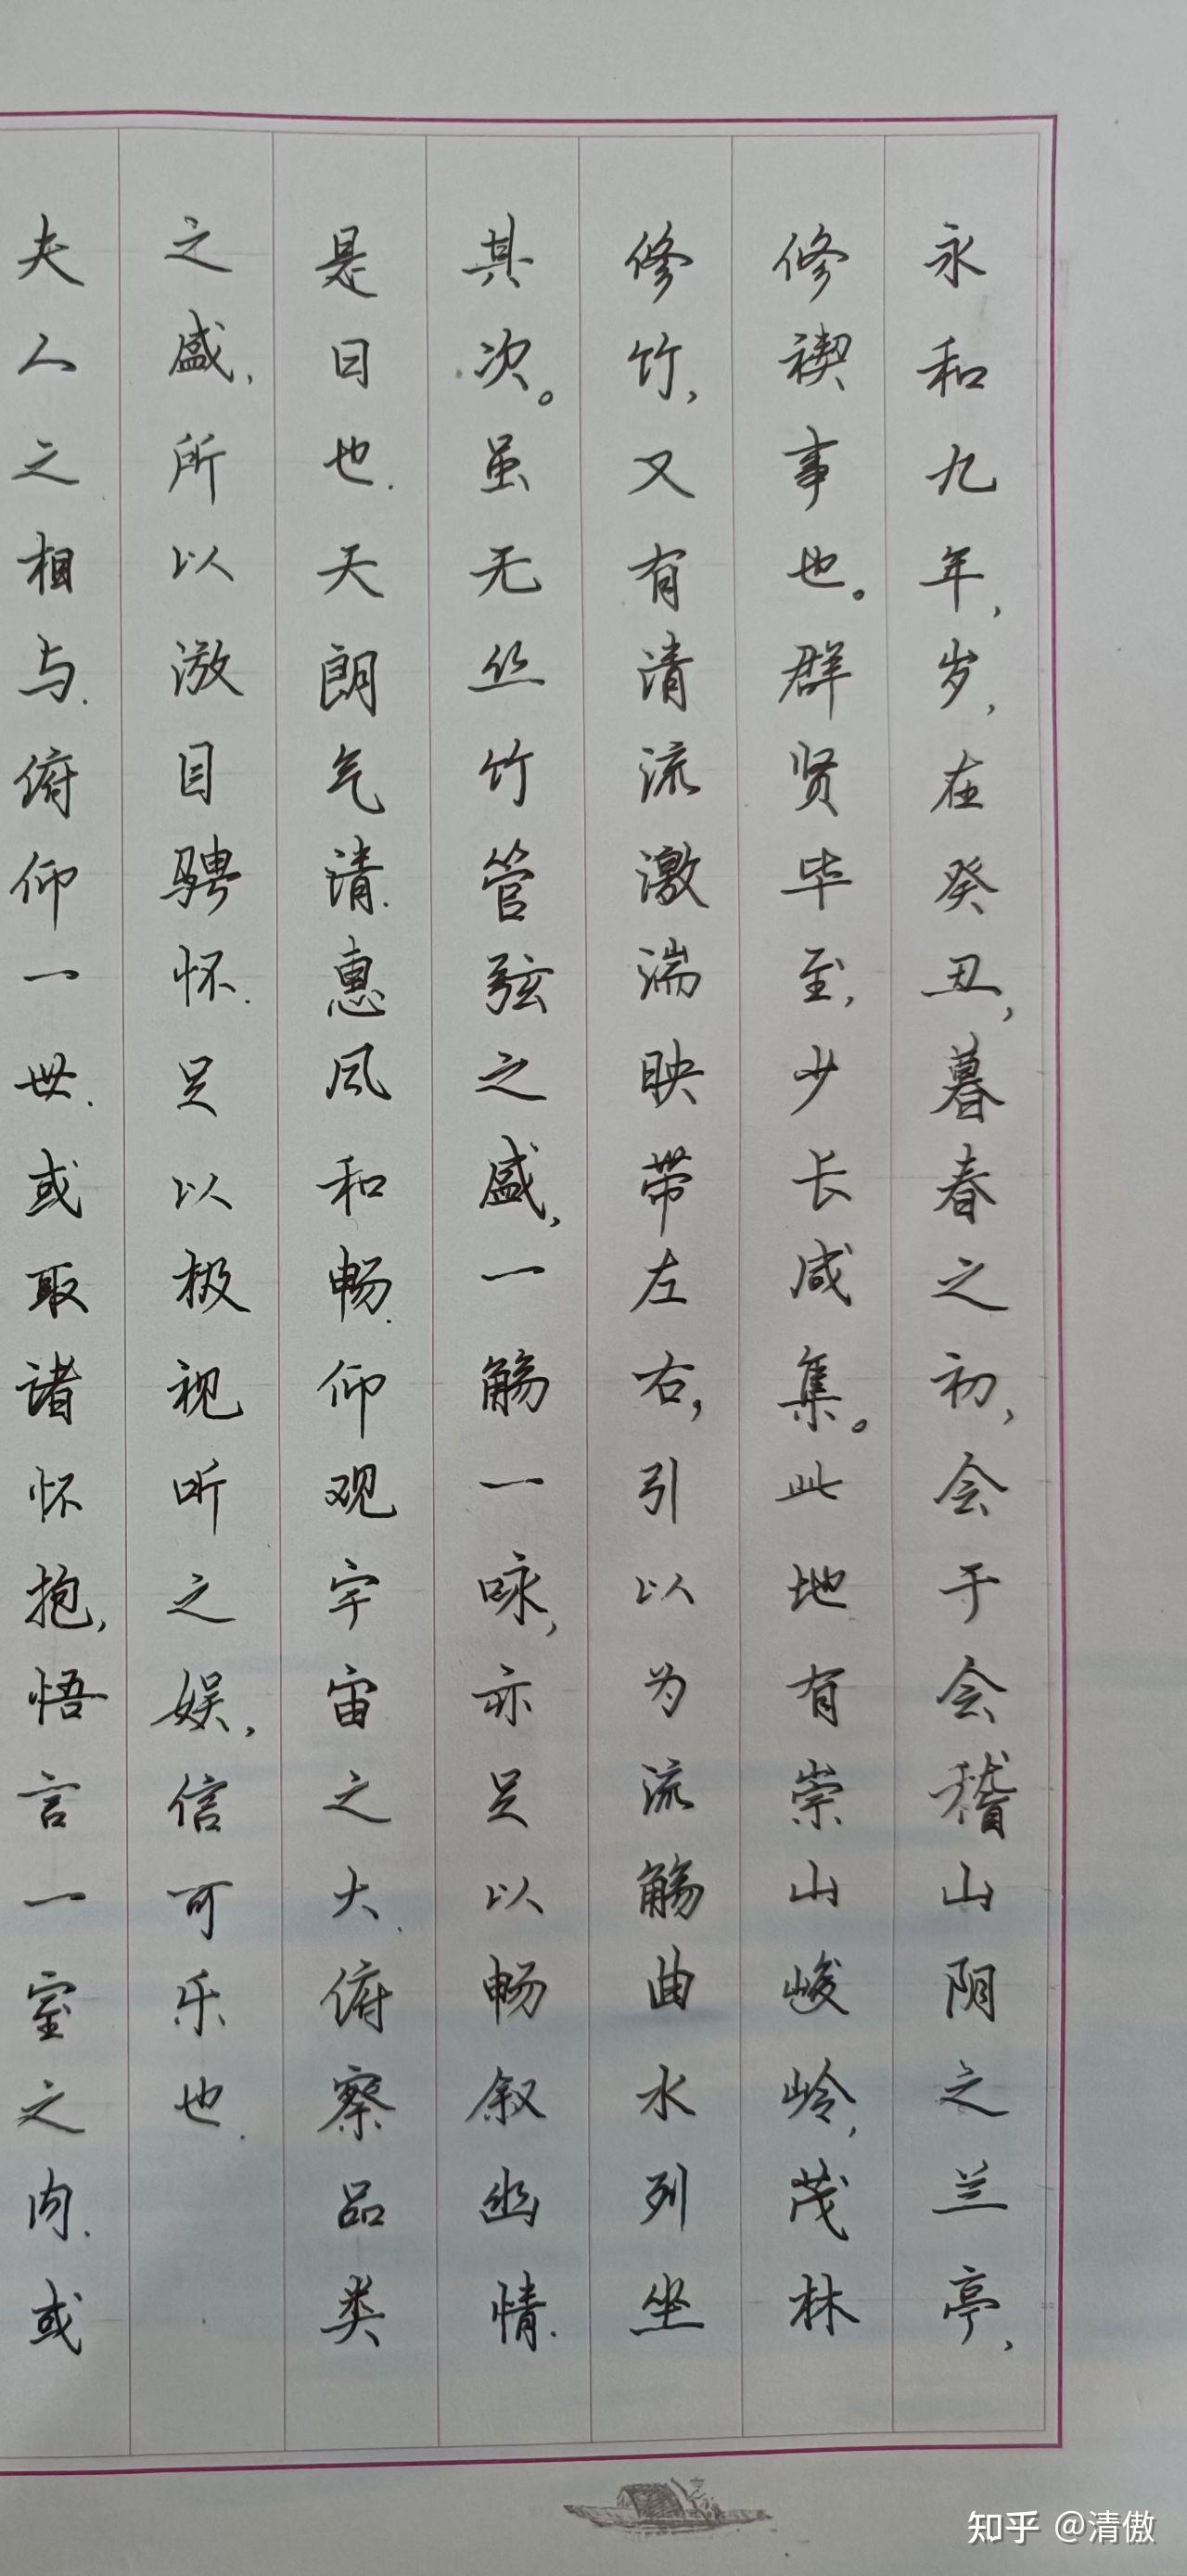 永和九年,岁,在癸丑,暮春之初,会于会稽山阴之兰亭,
修禊事也。群贤毕至,少长咸集。此地有崇山峻岭,茂林
修竹,又有清流激湍映带左右,引以为流觞曲水列坐
其次。虽无丝竹管弦之盛,一觞一咏,亦足以畅叙幽情.
是日也.天朗气清.惠风和畅.仰观宇宙之大.俯察品类
之盛,所以游目骋怀.足以极视听之娱,信可乐也.
夫人之相与.俯仰一世.或取诸怀抱,悟言一室之内.或
知乎 @清傲